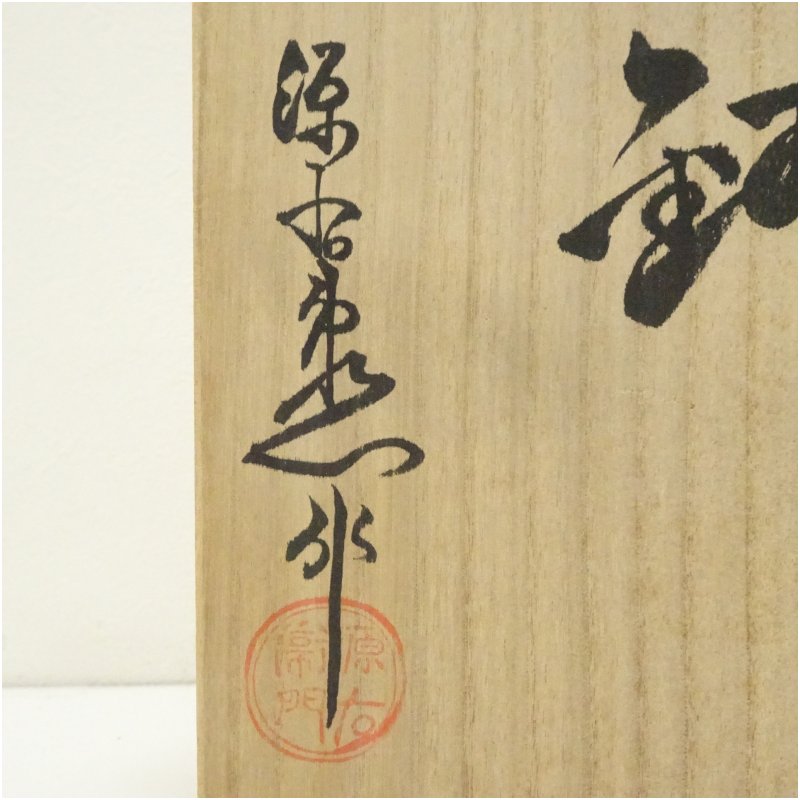 源右衛門作
源右衛門